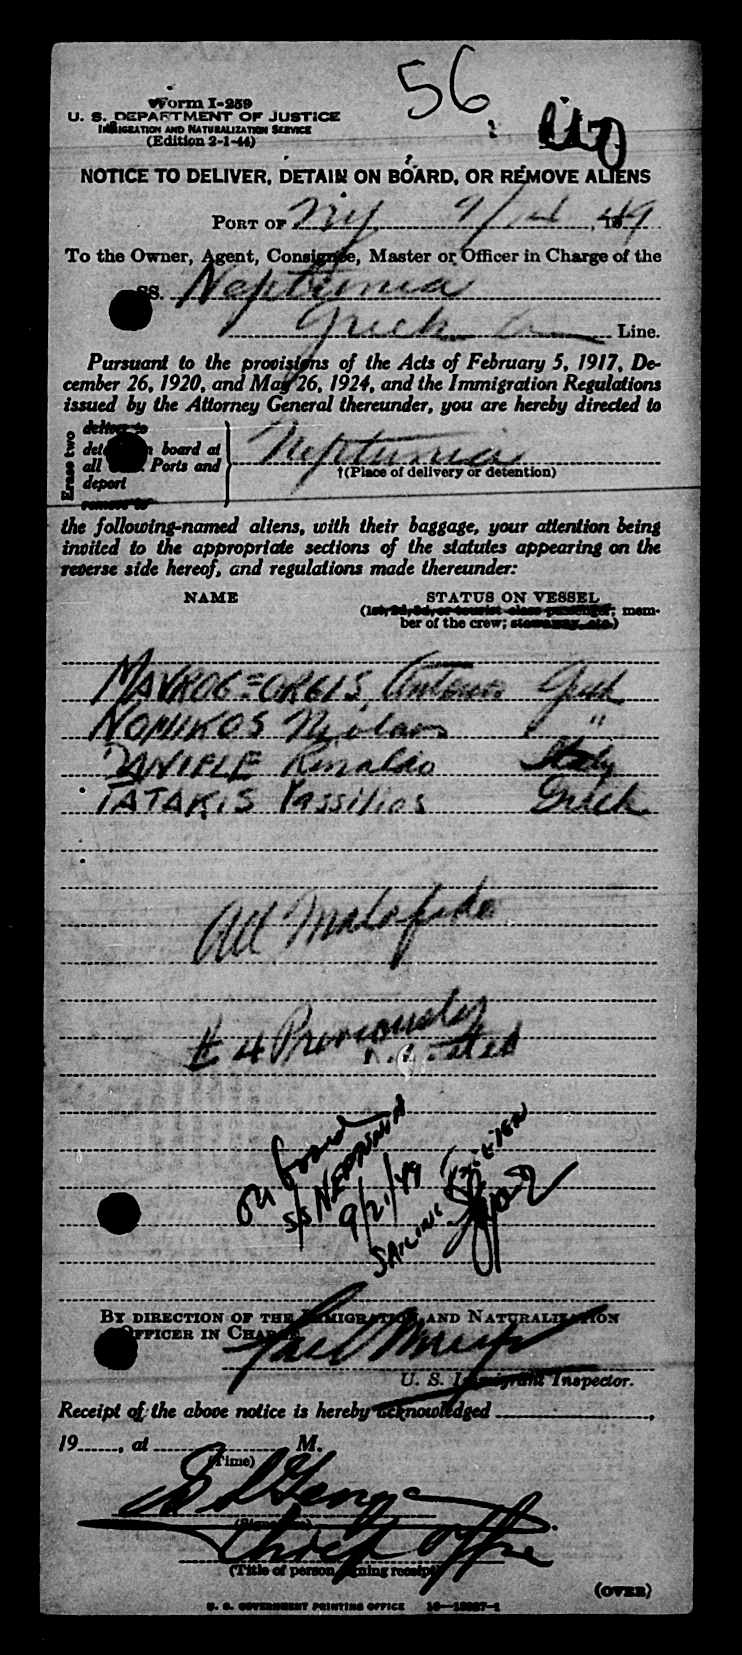 56
Form I-259
U. S. DEPARTMENT OF JUSTICE
IMMIGRATION AND NATURALIZATION SERVICE
(Edition 2-1-44)
NOTICE TO DELIVER, DETAIN ON BOARD, OR REMOVE ALIENS
PORT OF NY 9/14, 1949
To the Owner, Agent, Consignee, Master or Officer in Charge of the
SS. Neptunia
Greek Line.
Pursuant to the provisions of the Acts of February 5, 1917, De-
cember 26, 1920, and May 26, 1924, and the Immigration Regulations
issued by the Attorney General thereunder, you are hereby directed to
Erase two
deliver to
detain on board at
all U.S. Ports and
deport
remove to
Neptunia
†(Place of delivery or detention)
the following-named aliens, with their baggage, your attention being
invited to the appropriate sections of the statutes appearing on the
reverse side hereof, and regulations made thereunder:
NAME STATUS ON VESSEL
(1st, 2d, 3d, or tourist class passenger; mem-
ber of the crew; stowaway, etc.)
MAVROGEORGIS, Antonios Greek
NOMIKOS Nicolaos "
DANIELE Rinaldo Italy
TATAKIS Vassilios Greek
All Malafide
# 4 Previously
on board
SS NEPTUNIA
9/21/49
SAILING
BY DIRECTION OF THE IMMIGRATION AND NATURALIZATION
OFFICER IN CHARGE
U. S. Immigrant Inspector.
Receipt of the above notice is hereby acknowledged
19, at M.
(Time)
(Signature)
Chief Offre
(Title of person signing receipt)
(OVER)
U. S. GOVERNMENT PRINTING OFFICE